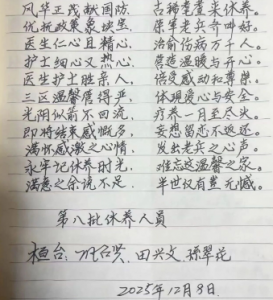 风华正茂献国防。 古稀耄耋来休养。
优抚政策英坡里 荣军老兵齐叫好。
医生仁心且精心, 治愈伤病万千人。
护士细心又热心, 营造温暖与开心。
医生护士胜亲人, 倍受感动和尊崇。
三区温馨赓得严, 体现爱心与安全。
光阴似箭不回流, 疗养一月至尽头。
即将结束感慨多, 妄想留恋不返还。
满怀感激之心情 发出老兵之心声。
永牢记休养时光, 难忘这温馨之家。
满意之余说不足, 半世仅有皆无憾。
第八批休养人员
桓台: 田兴文、孙翠花
2025年12月8日